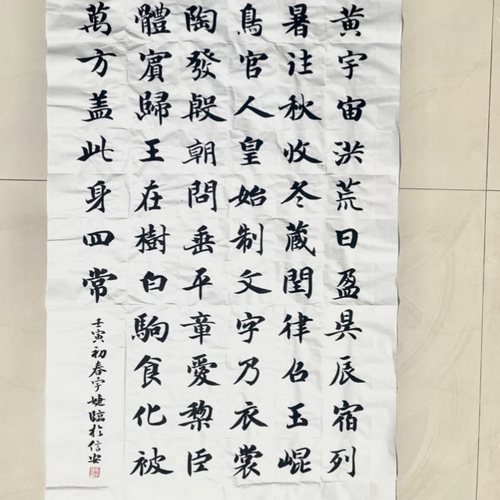 黄宇宙洪荒日盈昃辰宿列
暑往秋收冬藏閏律召玉崐
鳥官人皇始制文字乃衣裳
陶發殷朝問垂平章愛黎臣
體賓歸王在樹白駒食化被
萬方盖此身四常
壬寅初春宇婕臨於信安